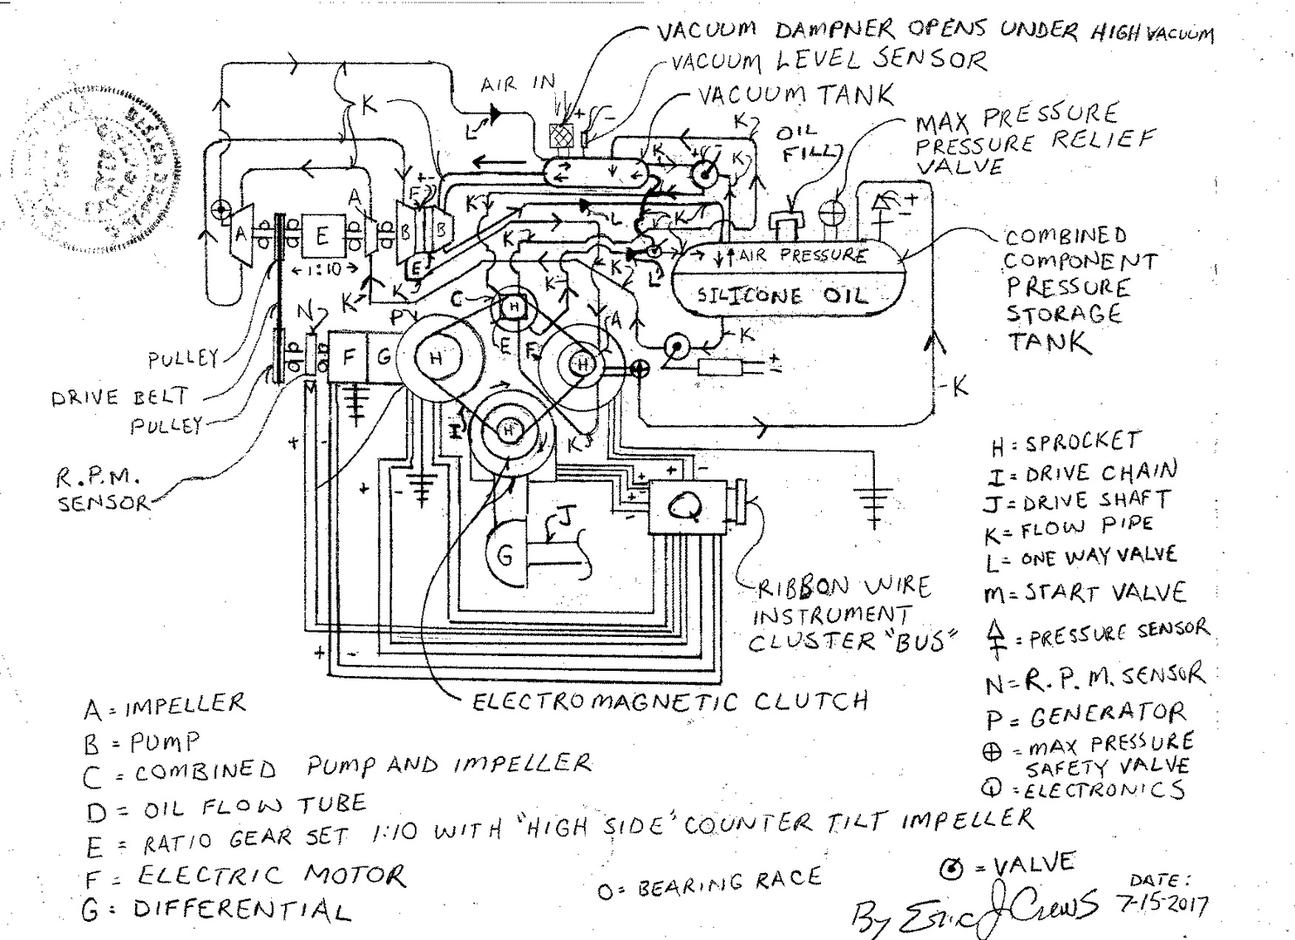 VACUUM DAMPNER OPENS UNDER HIGH VACUUM
VACUUM LEVEL SENSOR
AIR IN
VACUUM TANK
K
L
OIL
FILL
MAX PRESSURE
PRESSURE RELIEF
VALVE
K
K
K
+ -
A
A
B
B
F
E
1:10
K
K
K
K
K
L
L
AIR PRESSURE
SILICONE OIL
COMBINED
COMPONENT
PRESSURE
STORAGE
TANK
C
H
E
F
A
K
N
P
PULLEY
DRIVE BELT
PULLEY
F
G
H
H
H
I
K
K
M
R.P.M.
SENSOR
+ -
+ -
+ -
Q
G
J
RIBBON WIRE
INSTRUMENT
CLUSTER "BUS"
ELECTROMAGNETIC CLUTCH
H = SPROCKET
I = DRIVE CHAIN
J = DRIVE SHAFT
K = FLOW PIPE
L = ONE WAY VALVE
M = START VALVE
= PRESSURE SENSOR
N = R.P.M. SENSOR
P = GENERATOR
= MAX PRESSURE
SAFETY VALVE
Q = ELECTRONICS
A = IMPELLER
B = PUMP
C = COMBINED PUMP AND IMPELLER
D = OIL FLOW TUBE
E = RATIO GEAR SET 1:10 WITH "HIGH SIDE" COUNTER TILT IMPELLER
F = ELECTRIC MOTOR
G = DIFFERENTIAL
O = BEARING RACE
= VALVE
By Eric J Crews
DATE:
7-15-2017